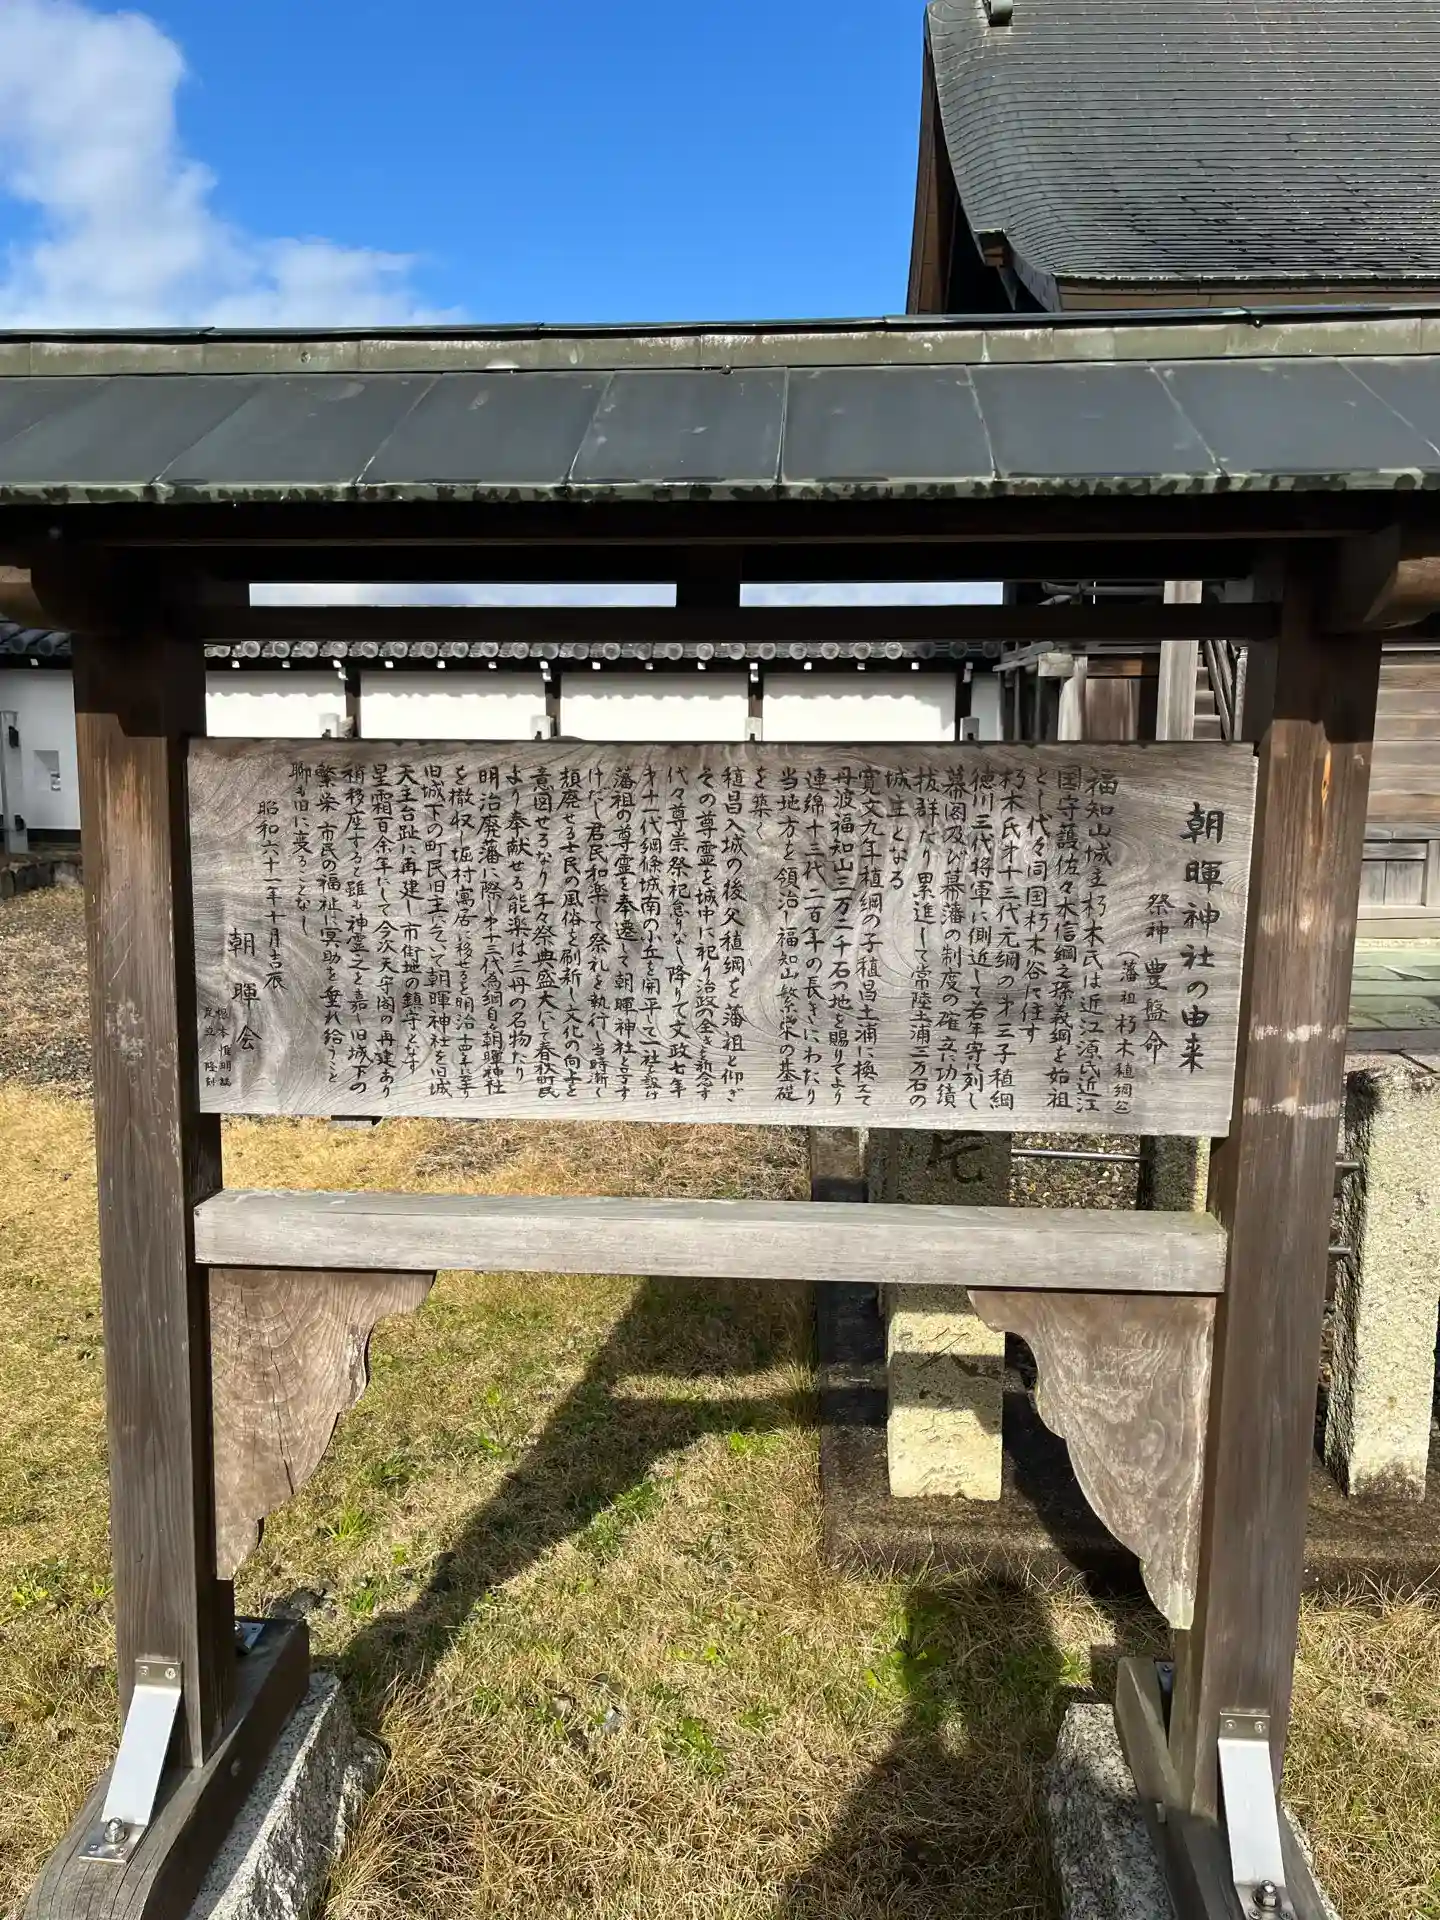 朝暉神社の由来
祭神 豊磐命
(藩祖朽木稙綱公)
福知山城主朽木氏は近江源氏近江
国守護佐々木信綱之孫義綱を始祖
とし代々同国朽木谷に住す
朽木氏才十三代元綱の才三子稙綱
徳川三代将軍に側近して若年寄に列し
幕閣及び幕藩の制度の確立に功績
抜群たり累進して常陸土浦三万石の
城主となる
寛文九年稙綱の子稙昌土浦に換えて
丹波福知山三万二千石の地を賜りてより
連綿十三代二百年の長きにわたり
当地方を領治し福知山繁栄の基礎
を築く
稙昌入城の後父稙綱を藩祖と仰ぎ
その尊霊を城中に祀り治政の全きを祈念す
代々尊崇祭祀怠りなし降りて文政七年
才十一代綱條城南の小丘を開平して一社を設け
藩祖の尊霊を奉遷して朝暉神社と号す
けだし君民和楽して祭礼を執行し当時漸く
頽廃せる士民の風俗を刷新し文化の向上を
意図せるなり年々祭典盛大にして春秋町民
より奉献せる能楽は三丹の名物たり
明治廃藩に際し才十三代為綱自ら朝暉神社
を撤収し堀村寓居に移せるを明治十四年に至り
旧城下の町民旧主に乞いて朝暉神社を旧城
天王台趾に再建し市街地の鎮守となす
星霜百余年にして今次天守閣の再建あり
稍移座すると雖も神霊之を嘉し旧城下の
繁栄市民の福祉に冥助を垂れ給うこと
聊も旧に変ることなし
昭和六十一年十月吉辰
朝暉会